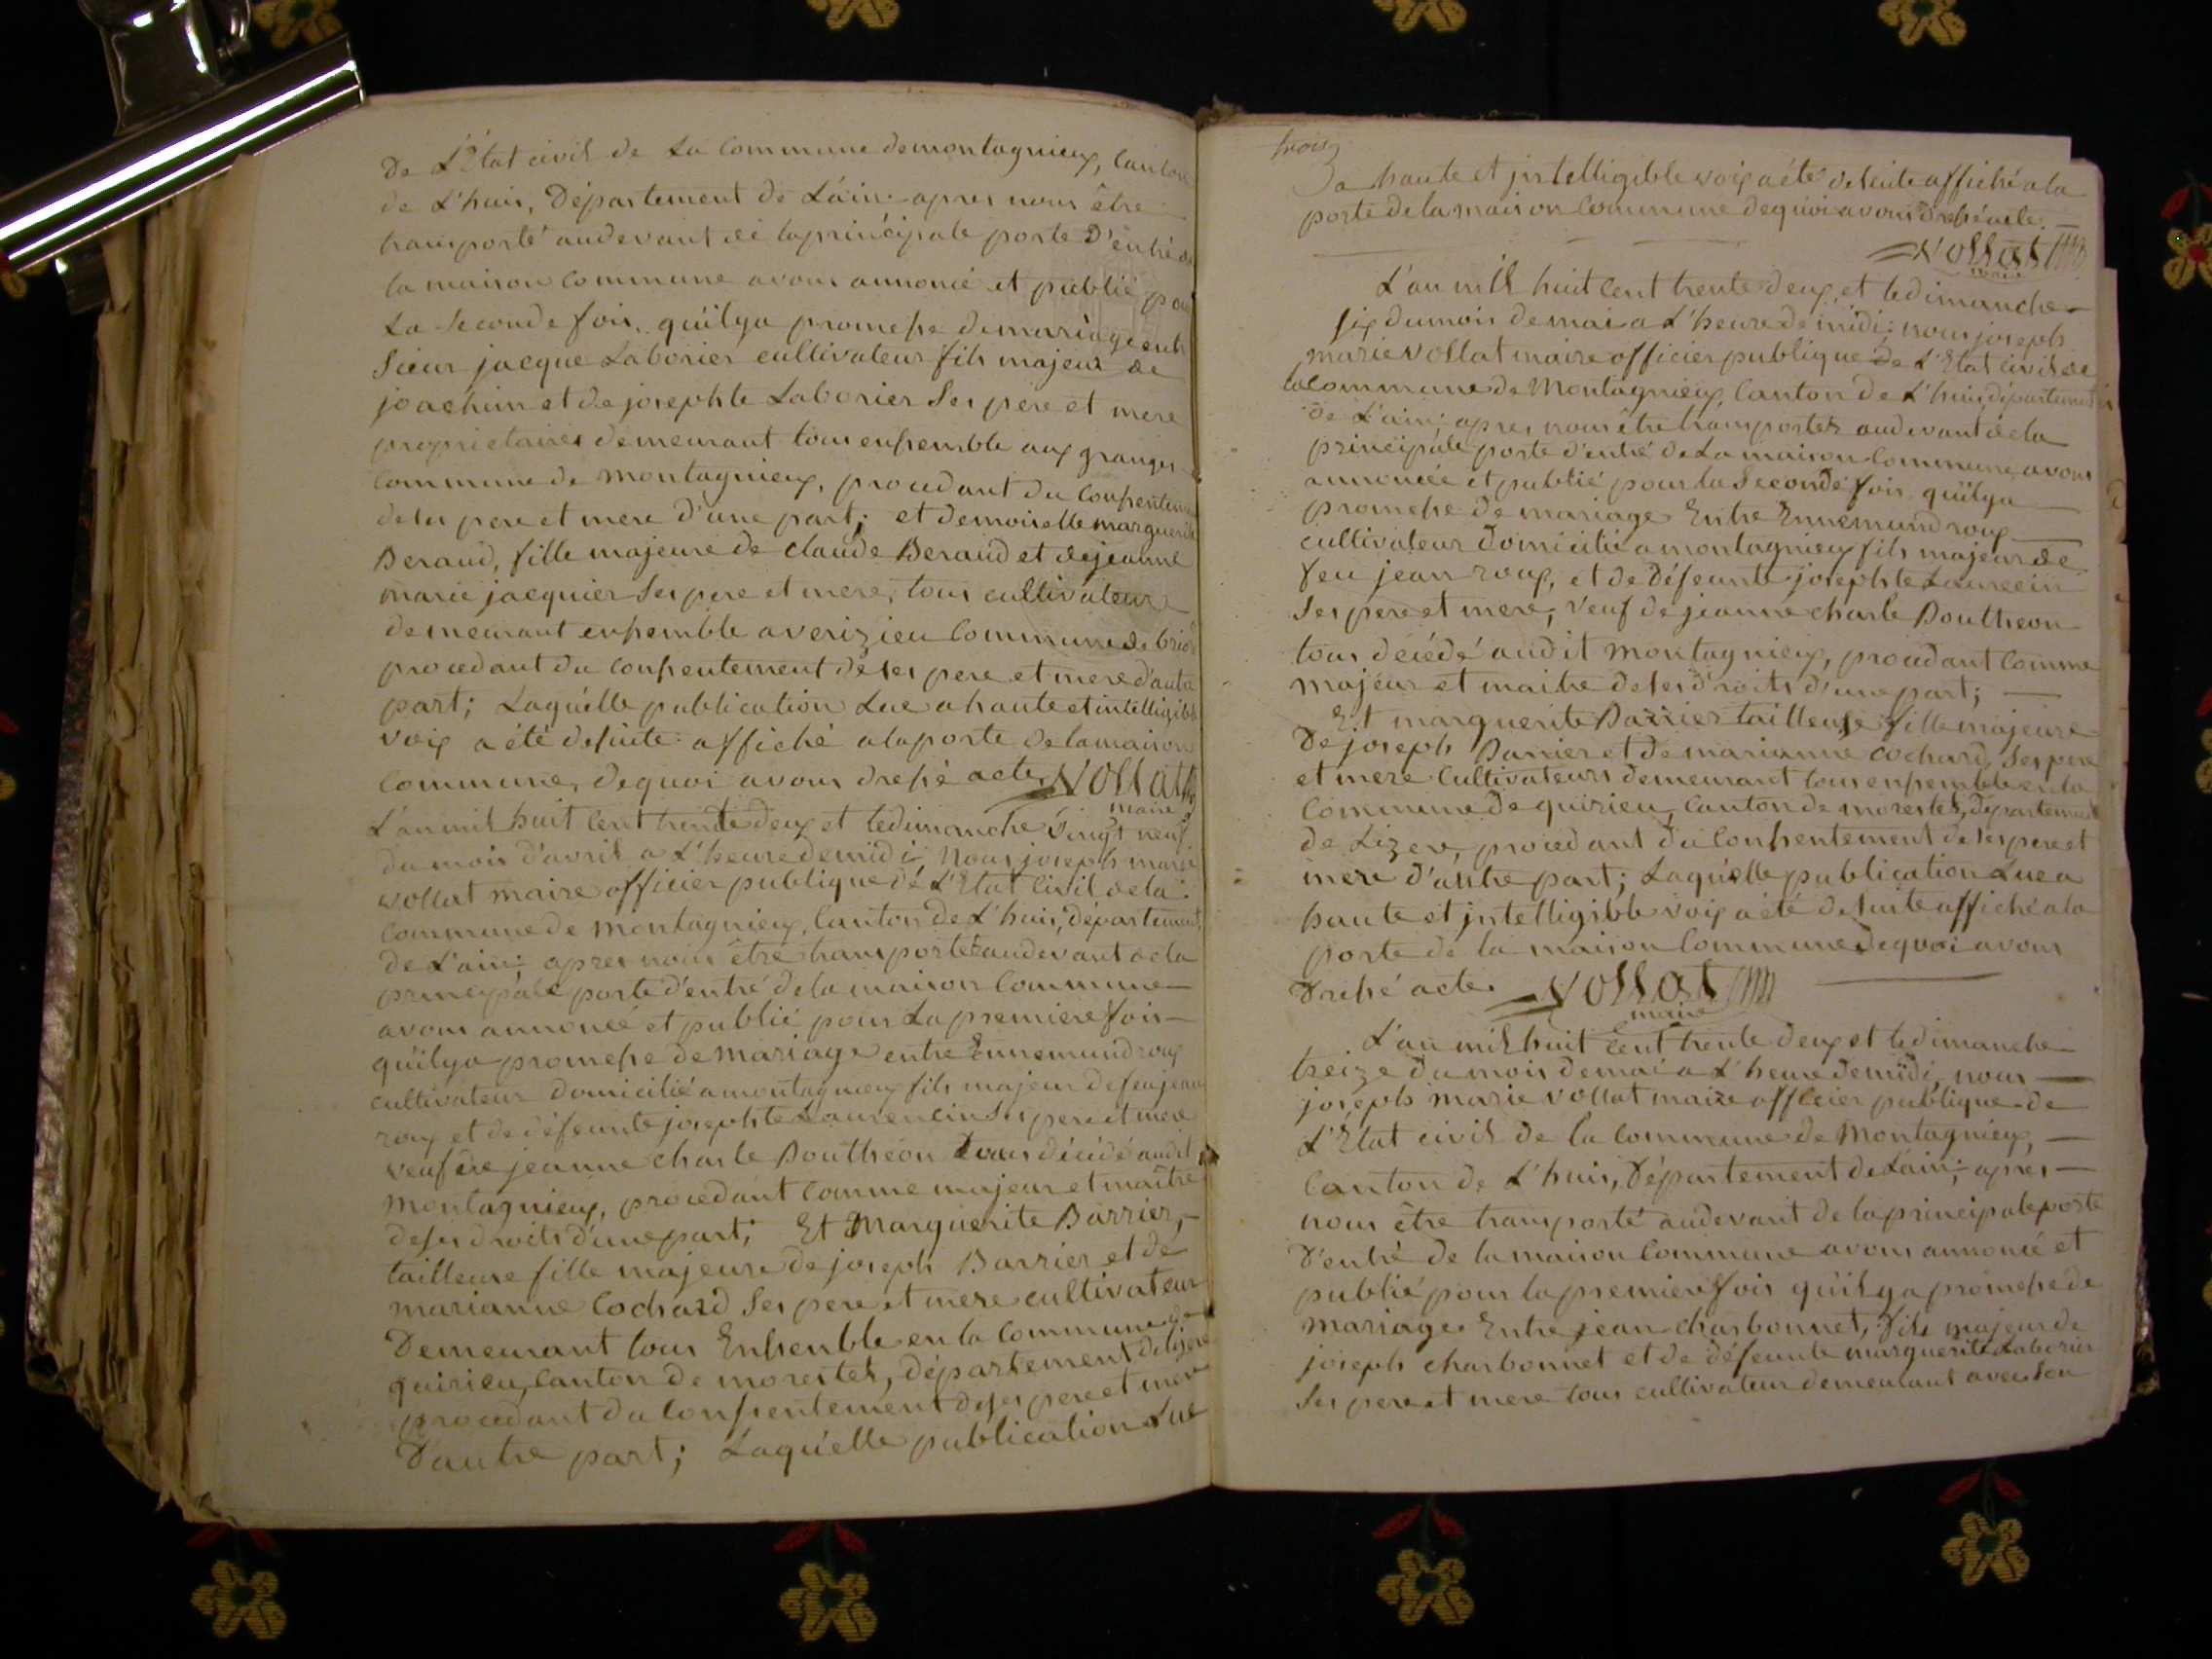 de L'Etat civil de La Commune de montagnieux, Canton
de L'huis, Département de L'ain: apres nous être
transporté audevant de la principale porte D'entré de
la maison commune avons annoncé et publié pour
La seconde fois, qu'il y a promesse de marriage entre
Sieur jacque Laborier cultivateur fils majeur de
joachim et de josephte Laborier Ses pere et mere
propriétaires demeurant tous ensemble aux granges
commune de montagnieux, procedant du consentement
de ses pere et mere d'une part; et demoiselle marguerite
Beraud, fille majeure de claude Beraud et de jeanne
marie jacquier Ses pere et mere, tous cultivateurs
demeurant ensemble a verizieu Commune de briord
procedant du consentement de ses pere et mere d'autre
part; Laquelle publication Lue a haute et intelligible
voix a été desuite affiché a la porte de la maison
commune, dequoi avons dressé acte Vollat
maire
L'an mil huit cent trente deux et le dimanche vingt neuf
du mois d'avril a L'heure de midi, Nous joseph marie
vollat maire officier publique de L'Etat Civil de la
commune de montagnieux, Canton de L'huis, département
de L'ain; apres nous être transportez audevant de la
principale porte d'entré de la maison commune
avons annoncé et publié pour La premiere fois
qu'il y a promesse de mariage entre Ennemund roux
cultivateur domicilié a montagnieux fils majeur de feu jean
roux et de défeunte josephte Laurencin Ses pere et mere
veuf de jeanne charle Doutheon tous décédé audit
montagnieux, procedant comme majeur et maitre
de ses droits d'une part; Et Marguerite Barrier,
tailleuse fille majeure de joseph Barrier et de
marianne Cochard Ses pere et mere cultivateur
Demeurant tous Ensemble en la commune de
quirieu, Canton de morestel, département de lizere
procedant du consentement de ses pere et mere
D'autre part; Laquelle publication Lue
trois
3
a haute et intelligible voix a été desuite affiché a la
porte de la maison commune dequoi avons dressé acte.
Vollat
maire
L'an mil huit cent trente deux, et le dimanche
six du mois de mai a L'heure de midi: nous joseph
marie vollat maire officier publique de L'Etat civil de
la commune de Montagnieux, Canton de L'huis, département
de L'ain: apres nous être transportez audevant de la
principale porte d'entré de La maison commune avons
annoncée et publié pour la Seconde fois qu'il y a
promesse de mariage Entre Ennemund roux
cultivateur domicilié a montagnieux fils majeur de
feu jean roux, et de défeunte josephte Laurecin
Ses pere et mere, veuf de jeanne charle Doutheon
tous décédé audit Montagnieux, procedant comme
majeur et maitre de ses droits d'une part;
Et marguerite Barrier tailleuse fille majeure
De joseph Barrier et de marianne cochard, Ses pere
et mere Cultivateurs demeurant tous ensemble en la
commune de quirieu, Canton de morestel, département
de Lizere, procedant du consentement de ses pere et
mere d'autre part; Laquelle publication Lue a
haute et intelligible voix a été desuite affiché a la
porte de la maison commune dequoi avons
Dressé acte. Vollat
maire
L'an mil huit Cent trente deux et le dimanche
treize du mois de mai a L'heure de midi, nous
joseph marie vollat maire officier publique de
L'Etat civil de la commune de Montagnieux,
Canton de L'huis, Département de L'ain; apres
nous être transporté audevant de la principale porte
D'entré de la maison Commune avons annoncé et
publié pour la premiere fois qu'il y a promesse de
mariage Entre jean charbonnet, fils majeur de
joseph charbonnet et de défeunte marguerite Laborier
Ses pere et mere tous cultivateur demeurant avec son